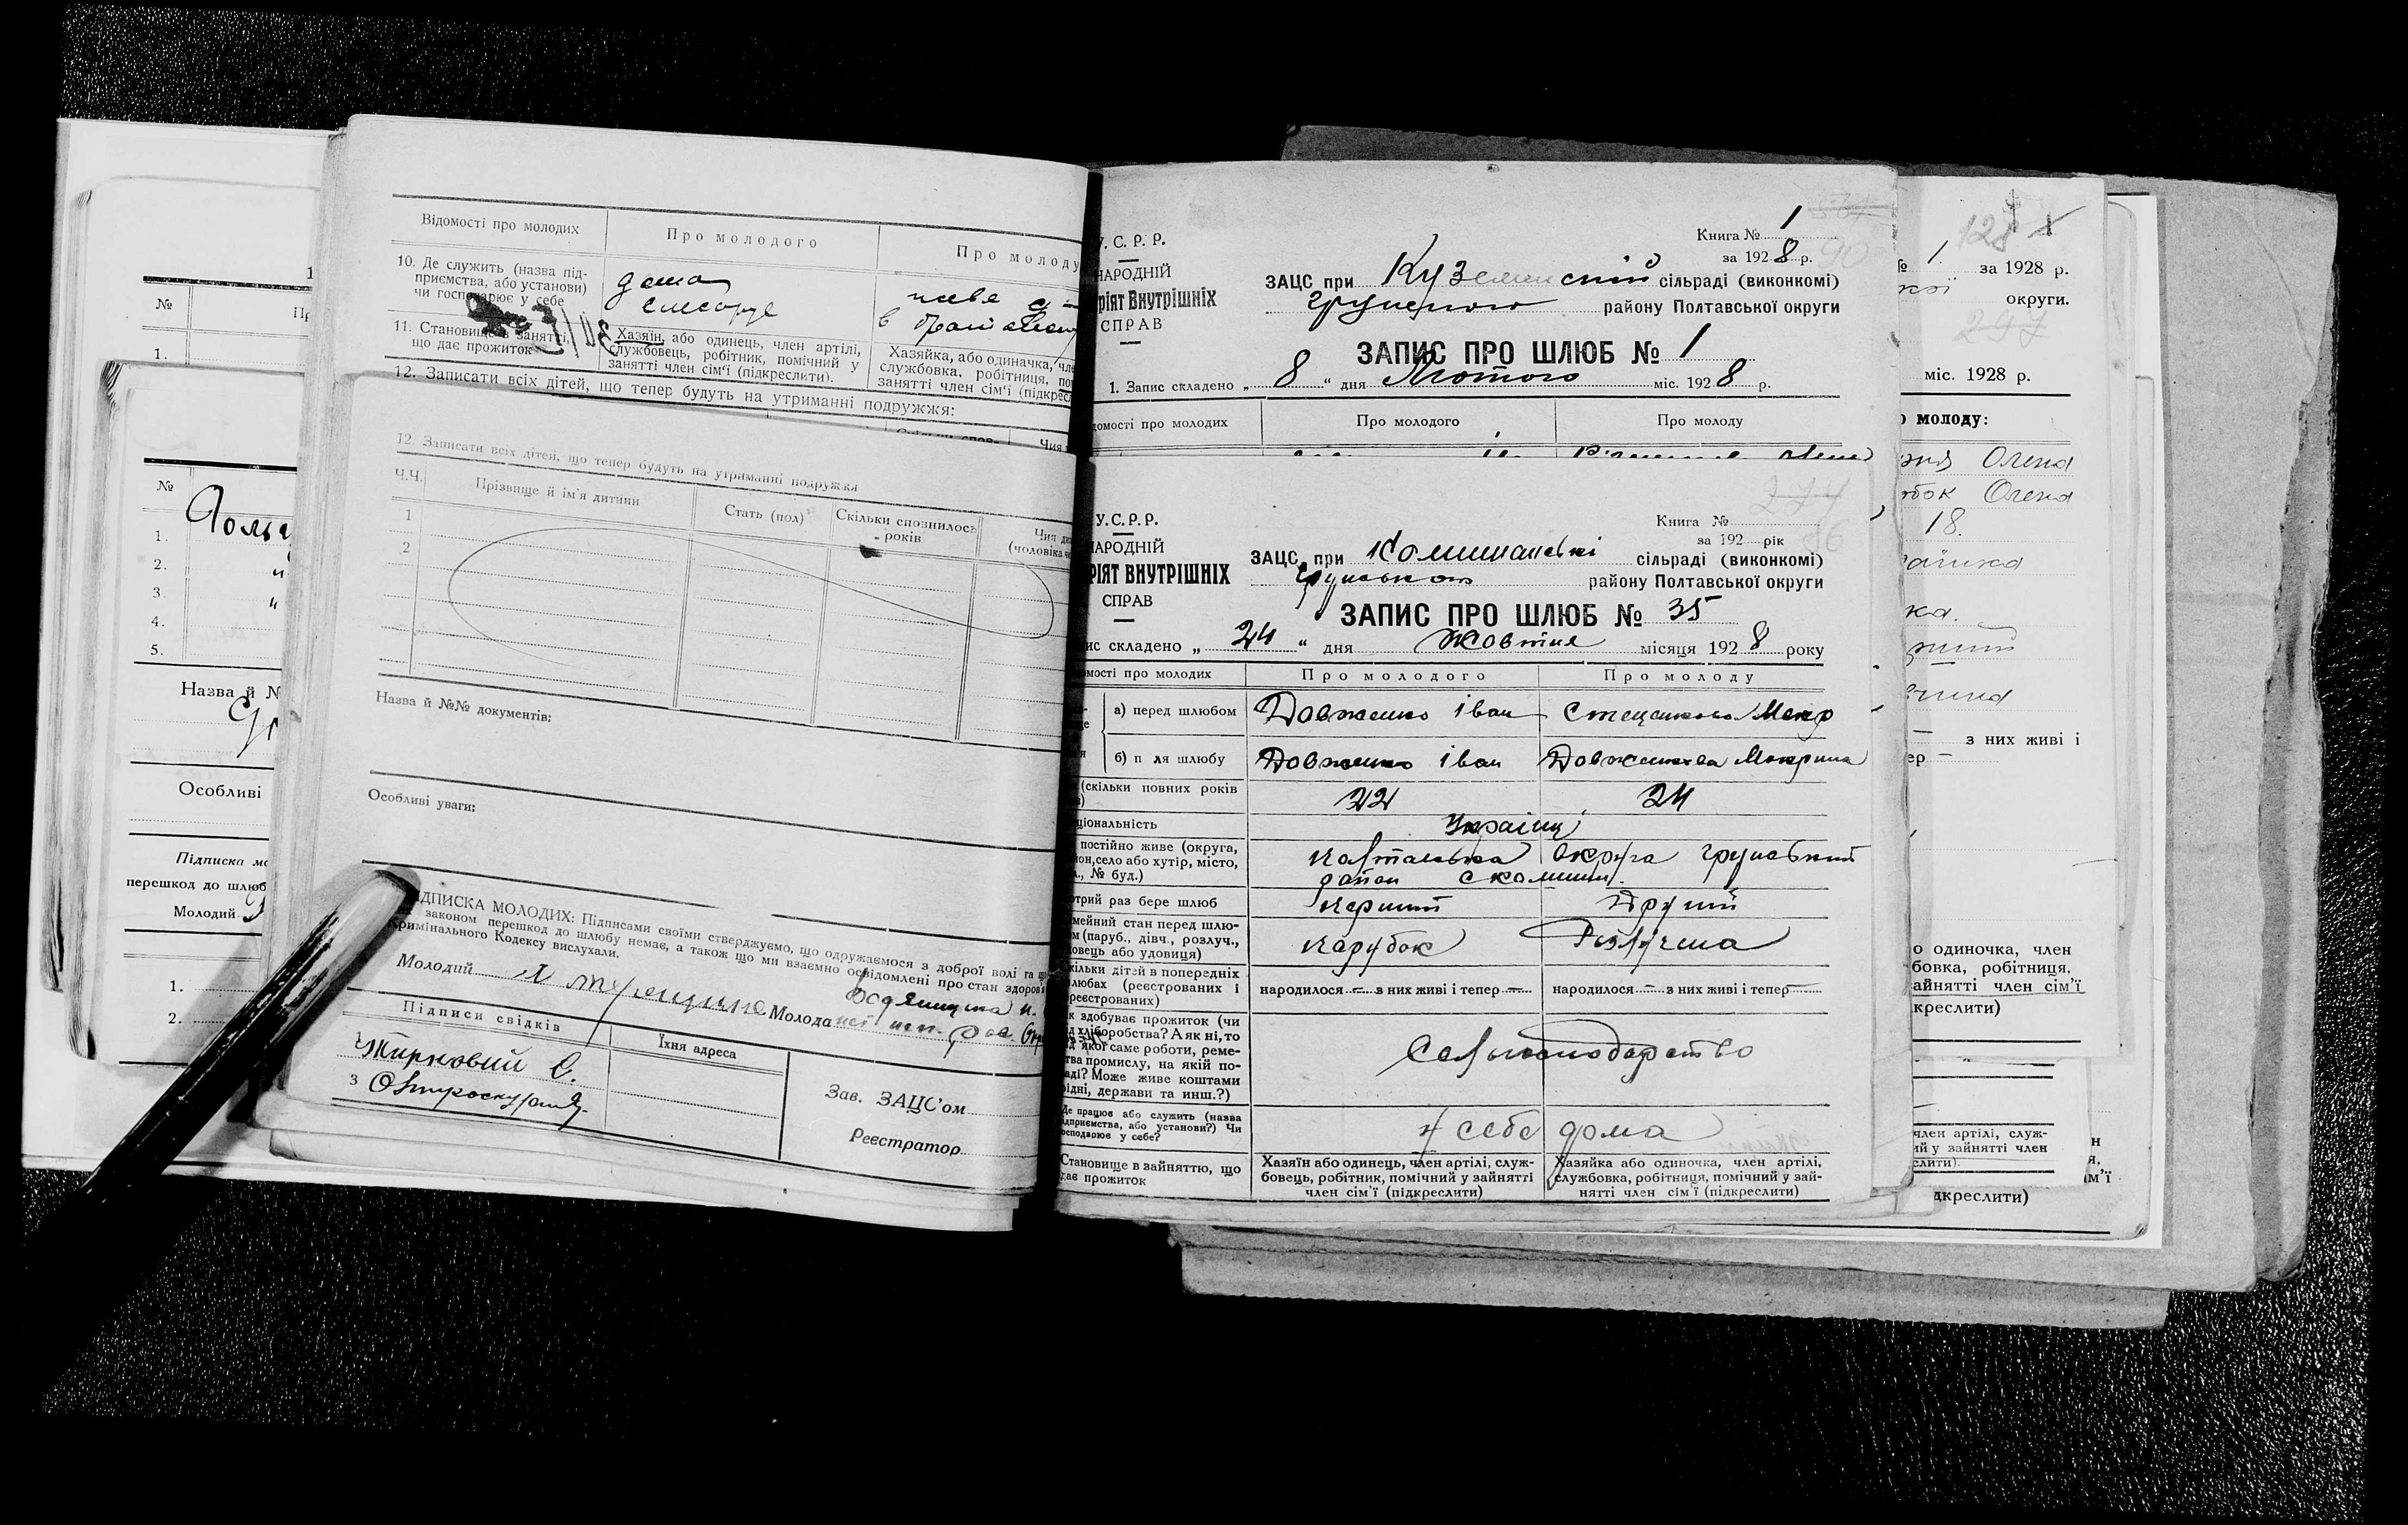 Відомості про молодих
Про молодого
Про молоду
10. Де служить (назва під-
приємства, або установи)
чи господарює у себе
дома
11. Становище в занятті,
що дає прожиток
Хазяїн, або одинець, член артілі,
службовець, робітник, помічний у
занятті член сім'ї (підкреслити).
Хазяйка, або одиначка, чле
службовка, робітниця, по
занятті член сім'ї (підкресл
12. Записати всіх дітей, що тепер будуть на утриманні подружжя:
12. Записати всіх дітей, що тепер будуть на утриманні подружжя
Ч.Ч.
Прізвище й ім'я дитини
Стать (пол)
Скільки сповнилось
років
Чия ди
(чоловіка чи
1
2
Назва й №№ документів:
Особливі уваги:
ПІДПИСКА МОЛОДИХ: Підписами своїми стверджуємо, що одружаємося з доброї волі та що
законом перешкод до шлюбу немає, а також що ми взаємно освідомлені про стан здоров'я
Кримінального Кодексу вислухали.
Молодий
Молода
Підписи свідків
Їхня адреса
Жирковий С.
з
Зав. ЗАЦС'ом
Реєстратор
№
1.
№
1.
2. "
3. "
4.
5.
Назва й №
Особливі
Підписка мо
перешкод до шлюб
Молодий
1.
2.
У.С.Р.Р.
НАРОДНІЙ
РІЯТ ВНУТРІШНІХ
СПРАВ
Книга № 1
за 1928 р.
90
ЗАЦС при Куземинскій сільраді (виконкомі)
грунского району Полтавської округи
ЗАПИС ПРО ШЛЮБ № 1
1. Запис складено „ 8 “ дня Лютого міс. 1928 р.
домості про молодих
Про молодого
Про молоду
У.С.Р.Р.
НАРОДНІЙ
РІЯТ ВНУТРІШНІХ
СПРАВ
274
86
Книга №
за 192 рік
ЗАЦС при Комишанські сільраді (виконкомі)
грунського району Полтавської округи
ЗАПИС ПРО ШЛЮБ № 35
ис складено „ 24 “ дня Жовтня місяця 1928 року
омості про молодих
Про молодого
Про молоду
а) перед шлюбом
Довженко Іван
Стеценкова Мокр
б) п ля шлюбу
Довженко Іван
Довженкова Мокрина
(скільки повних років
22
24
ціональність
Українці
постійно живе (округа,
йон, село або хутір, місто,
л., № буд.)
Полтавська округа грунський
район с Комиші.
отрий раз бере шлюб
перший
Другий
імейний стан перед шлю-
ом (паруб., дівч., розлуч.,
довець або удовиця)
парубок
Розлучена
кільки дітей в попередніх
любах (реєстрованих і
реєстрованих)
народилося — з них живі і тепер —
народилося — з них живі і тепер —
к здобуває прожиток (чи
ід хліборобства? А як ні, то
д якої саме роботи, реме-
тва промислу, на якій по-
аді? Може живе коштами
ідні, держави та инш.?)
Сельгосподарство
Де працює або служить (назва
ідприємства, або установи?) Чи
осподарює у себе?
у себе дома
Становище в зайняттю, що
дає прожиток
Хазяїн або одинець, член артілі, служ-
бовець, робітник, помічний у зайнятті
член сім'ї (підкреслити)
Хазяйка або одиночка, член артілі,
службовка, робітниця, помічний у зай-
нятті член сім'ї (підкреслити)
128
№ 1 за 1928 р.
округи.
297
міс. 1928 р.
о молоду:
Олена
Олена
18.
з них живі і
ер —
о одиночка, член
бовка, робітниця,
айнятті член сім'ї
креслити)
член артілі, служ-
ий у зайнятті член
слити).
дкреслити)